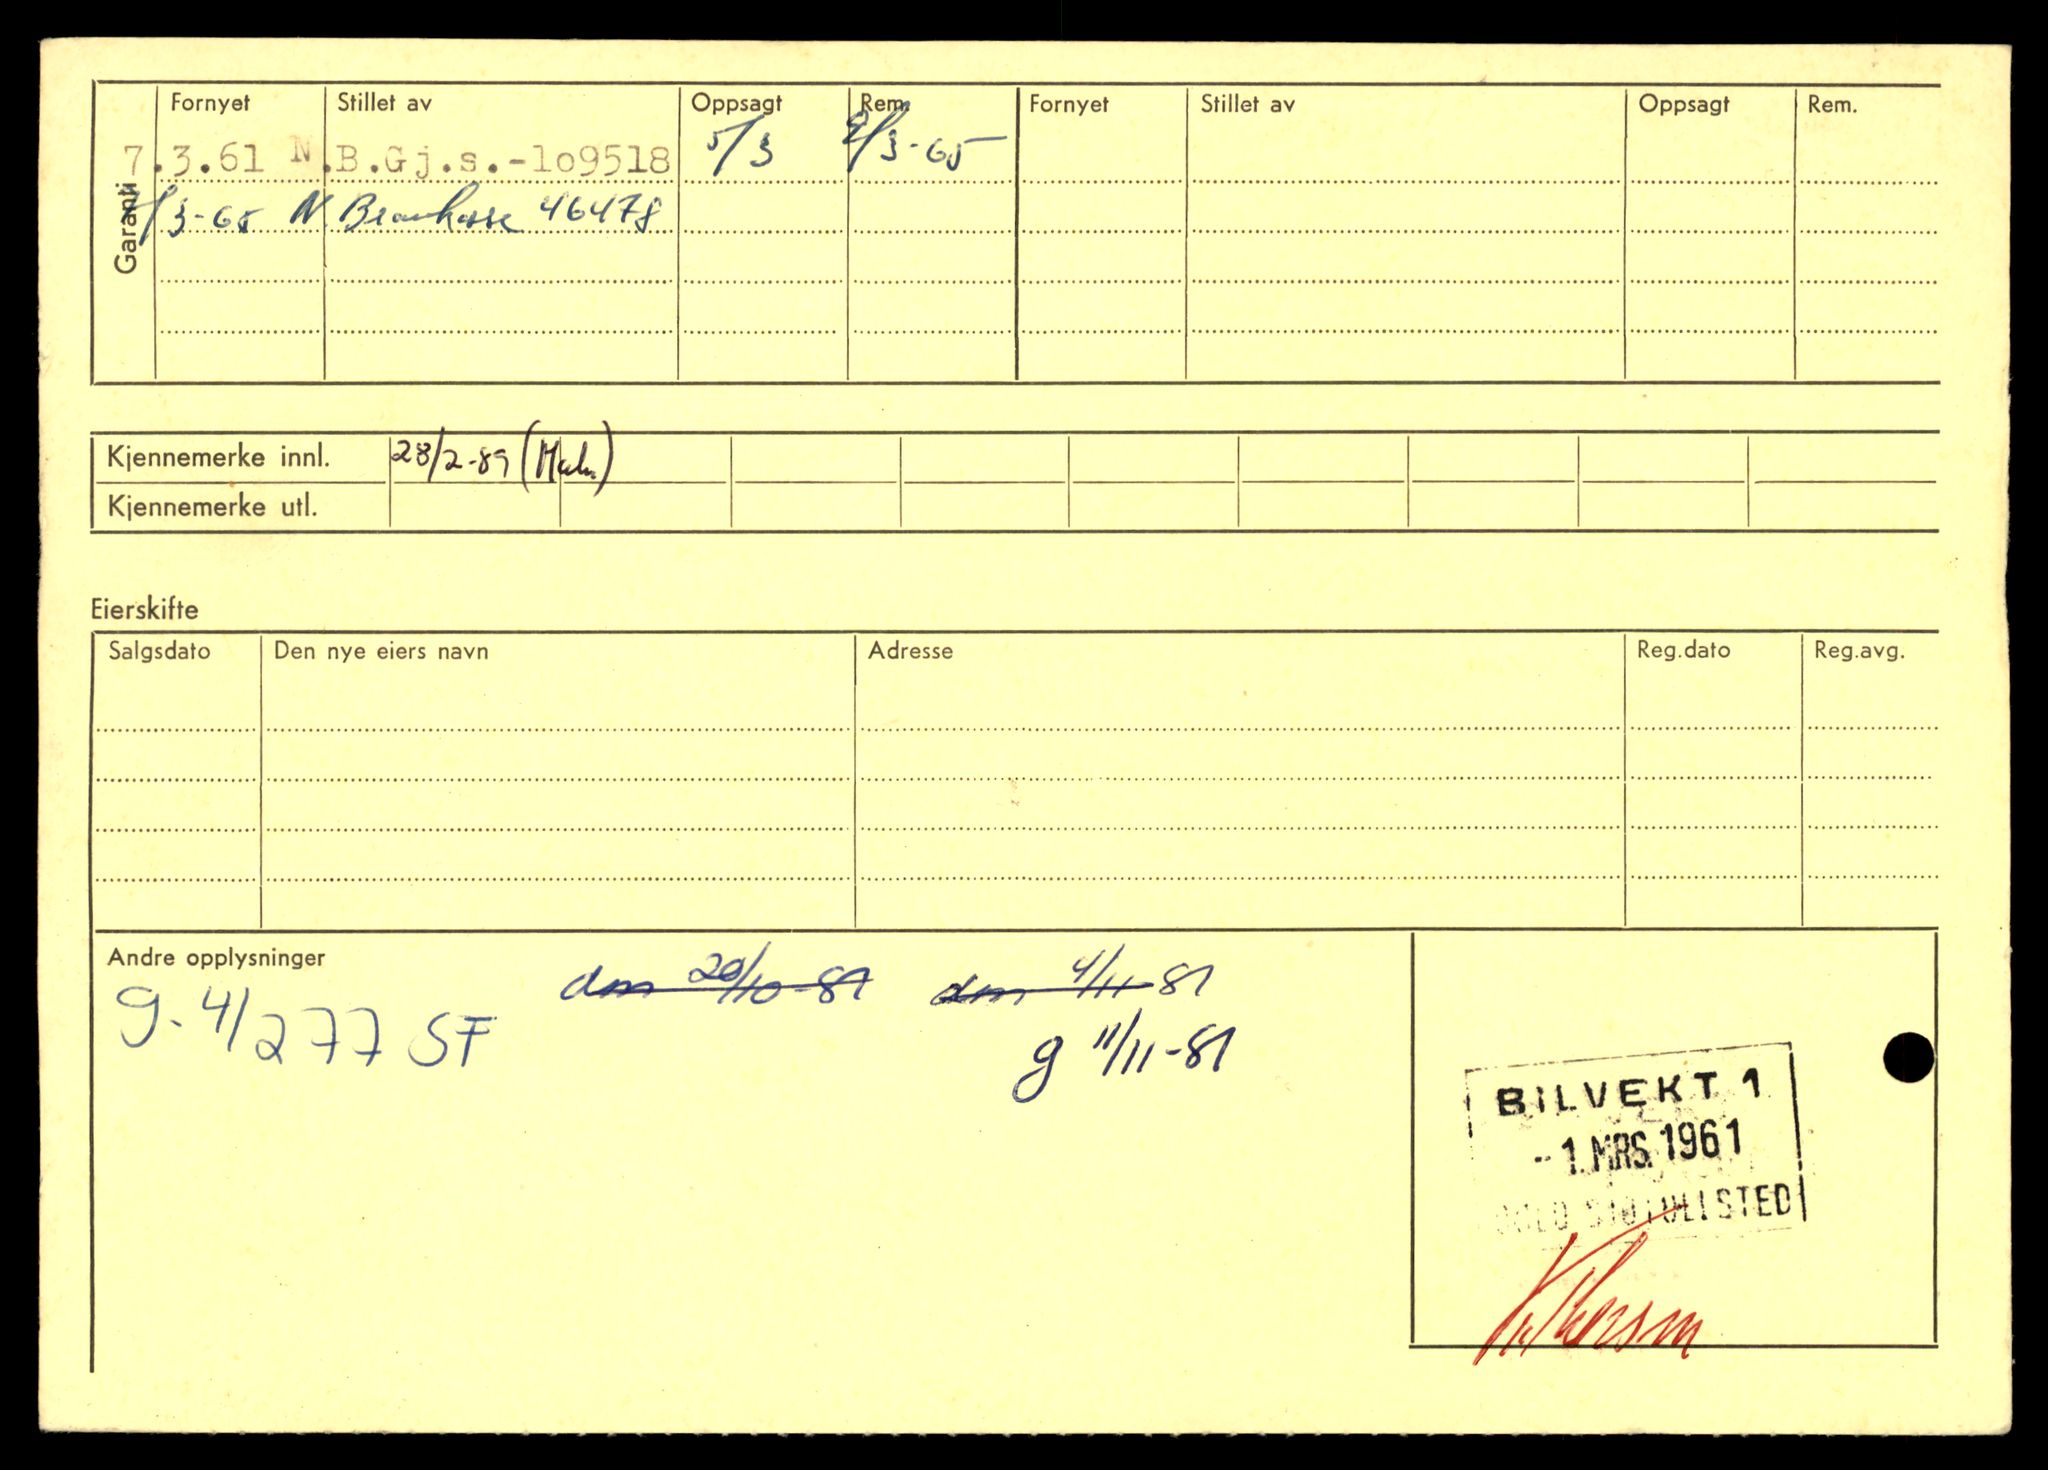 Garanti
Fornyet Stillet av Oppsagt Rem. Fornyet Stillet av Oppsagt Rem.
7.3.61 N.B.Gj.s.-1o9518 5/3 2/3-65
/3-65 N. Brankasse 46478
Kjennemerke innl. 28/2-89
Kjennemerke utl.
Eierskifte
Salgsdato Den nye eiers navn Adresse Reg.dato Reg.avg.
Andre opplysninger dm 20/10-81 dm 4/11-81
g. 4/277 SF g 11/11-81
BILVEKT 1
-1.MRS.1961